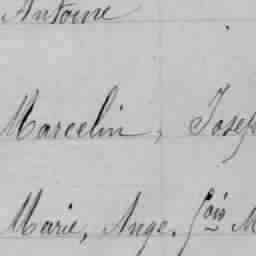 Antoine
Marcelin, Josep
Marie, Ange. fois M